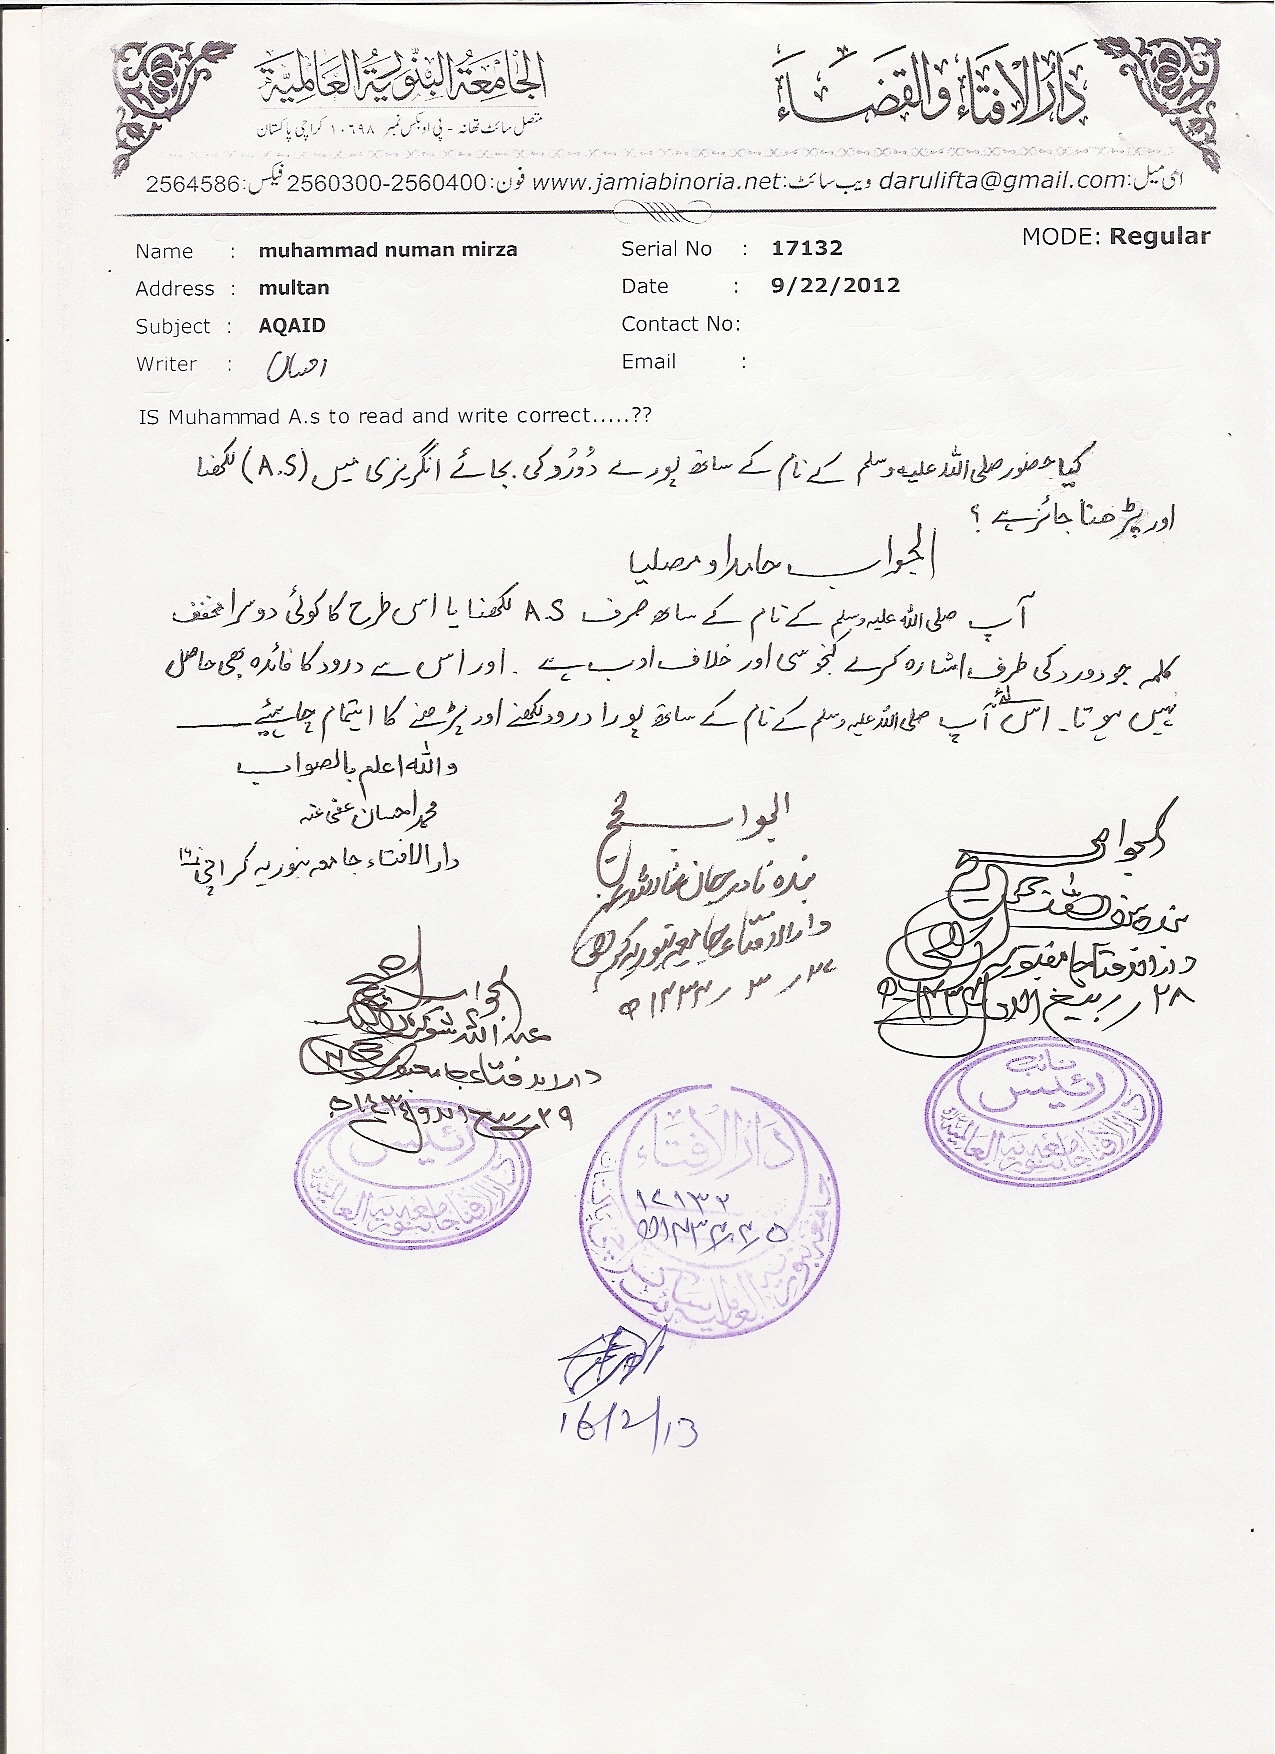 الجامعة البنورية العالمية
دار الافتاء والقضاء
متصل سائٹ تھانہ - پی او بکس نمبر ۱۰۶۹۸ کراچی پاکستان
ای میل: darulifta@gmail.com ویب سائٹ: www.jamiabinoria.net فون: 2560300-2560400 فیکس: 2564586
MODE: Regular
Name : muhammad numan mirza Serial No : 17132
Address : multan Date : 9/22/2012
Subject : AQAID Contact No:
Writer : احسان Email :
IS Muhammad A.s to read and write correct.....??
کیا حضور صلی اللہ علیہ وسلم کے نام کے ساتھ پورے دُرُود کی بجائے انگریزی میں (A.S) لکھنا
اور پڑھنا جائز ہے ؟
الجواب حامدا و مصلیا
آپ صلی اللہ علیہ وسلم کے نام کے ساتھ صرف A.S لکھنا یا اس طرح کا کوئی دوسرا مخفف
کلمہ جو درود کی طرف اشارہ کرے کنجوسی اور خلاف ادب ہے ۔ اور اس سے درود کا فائدہ بھی حاصل
نہیں ہوتا۔ اس لئے آپ صلی اللہ علیہ وسلم کے نام کے ساتھ پورا درود لکھنے اور پڑھنے کا اہتمام چاہیئے
واللہ اعلم بالصواب
محمد احسان عفی عنہ
دار الافتاء جامعہ بنوریہ کراچی ۱۶
الجواب صحیح
بندہ نادر جان
دار الافتاء جامعہ بنوریہ کراچی
الجواب صحیح
بندہ
دار الافتاء جامعہ بنوریہ
۲۸ ربیع الاول ۱۴۳۴ھ
الجواب صحیح
عبد اللہ شوکت
دار الافتاء جامعہ بنوریہ
۲۹ ربیع الاول ۱۴۳۴ھ
نائب رئیس
دار الافتاء جامعہ بنوریہ العالمیہ
رئیس
دار الافتاء جامعہ بنوریہ العالمیہ
دار الافتاء
۱۷۱۳۲
16/2/13